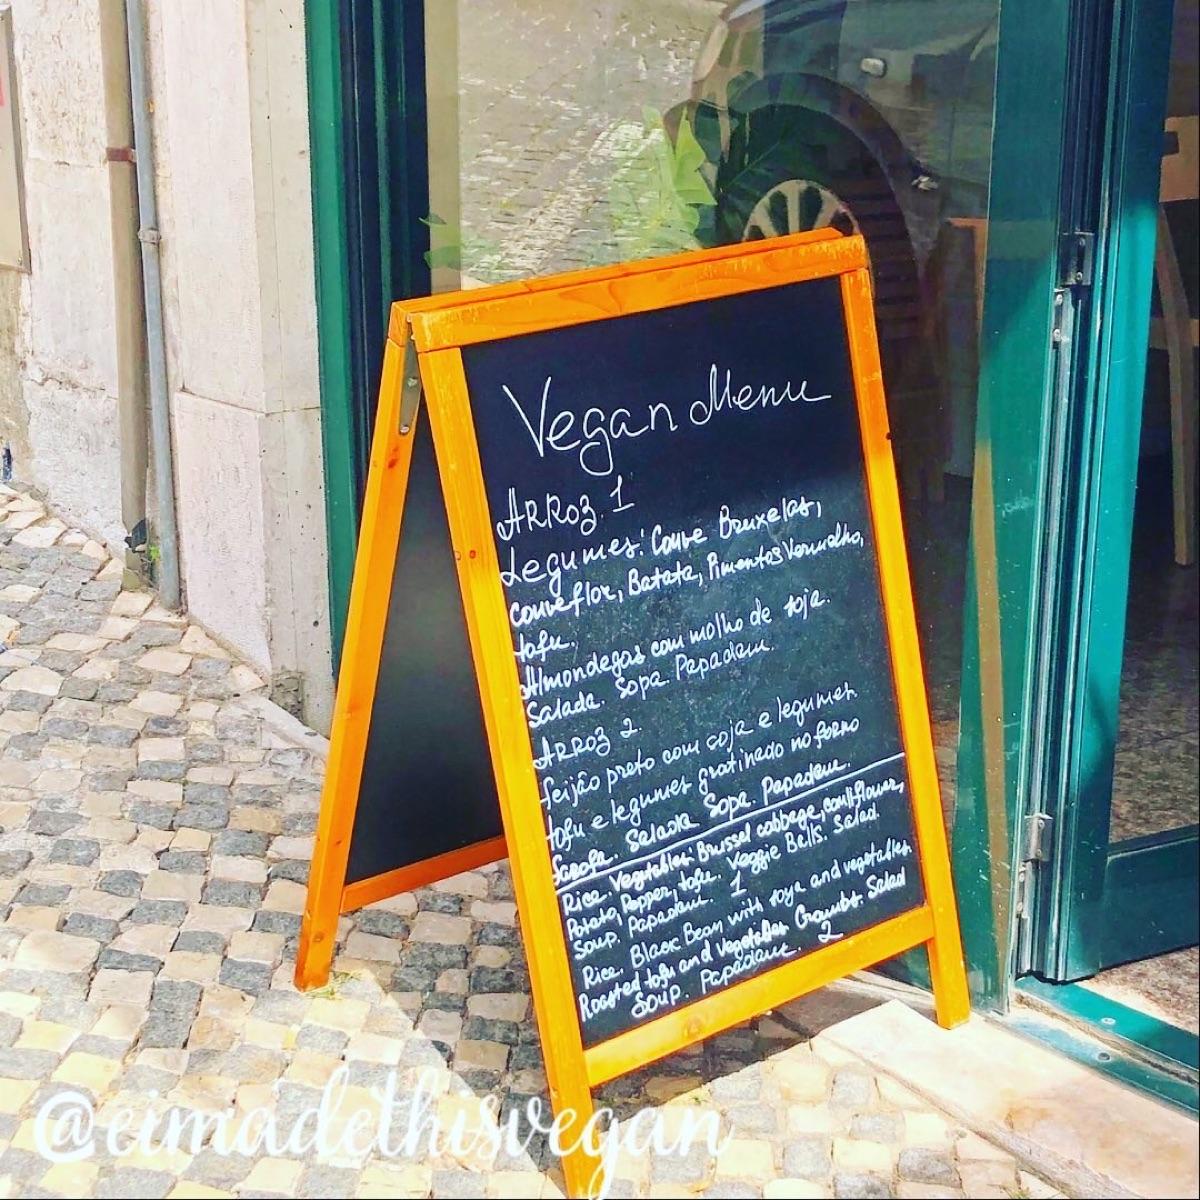 Vegan Menu
Arroz 1
Legumes: Couve Bruxelas,
couveflor, Batata, Pimentos Vermelho,
tofu.
Almondegas com molho de soja.
Salada. Sopa. Papadam.
Arroz 2.
feijão preto com soja e legumes.
tofu e legumes gratinado no forno
Farofa. Salada Sopa. Papadam.
Rice. Vegetables. Brussel cabbage, couliflower,
Potato, Pepper, tofu. Veggie Balls. Salad.
Soup. Papadam. 1
Rice. Black Bean with soya and vegetables.
Roasted tofu and vegetables Crombs. Salad
Soup. Papadam. 2
@eimadethisvegan